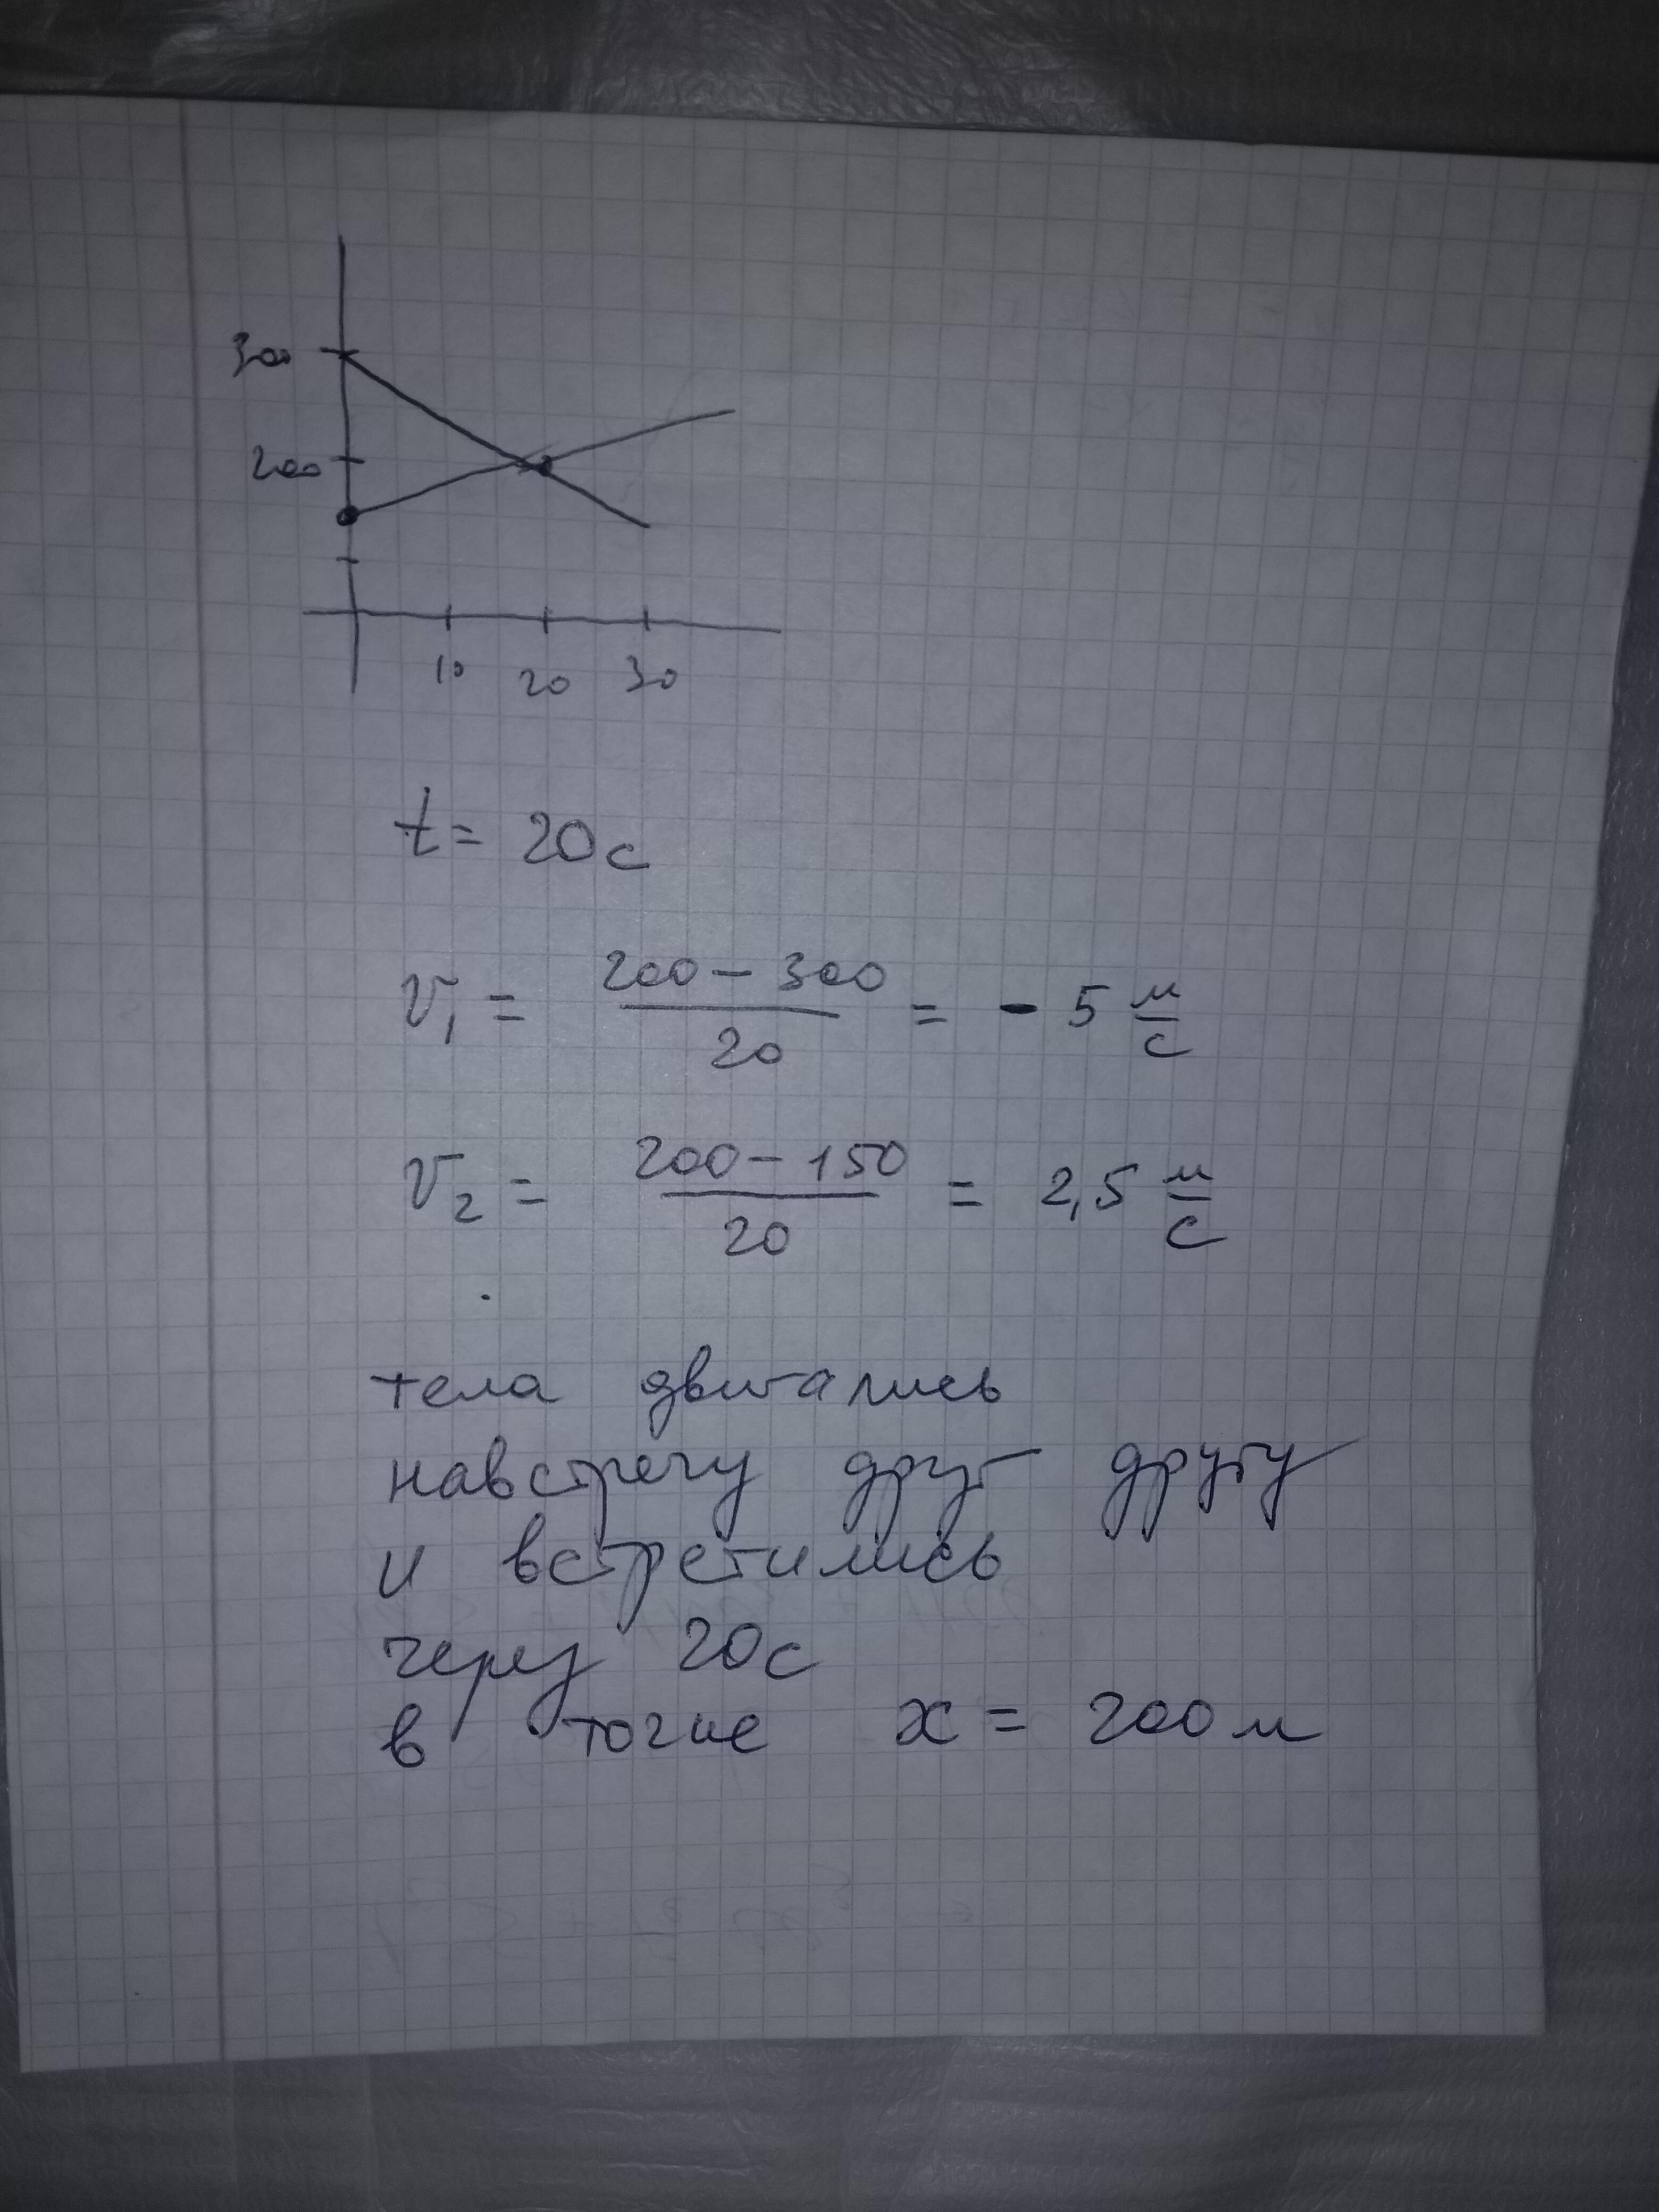 300
200
10 20 30
t = 20с
v₁ = (200 − 300)/20 = − 5 м/с
v₂ = (200 − 150)/20 = 2,5 м/с
тела двигались
навстречу друг другу
и встретились
через 20с
в точке x = 200 м